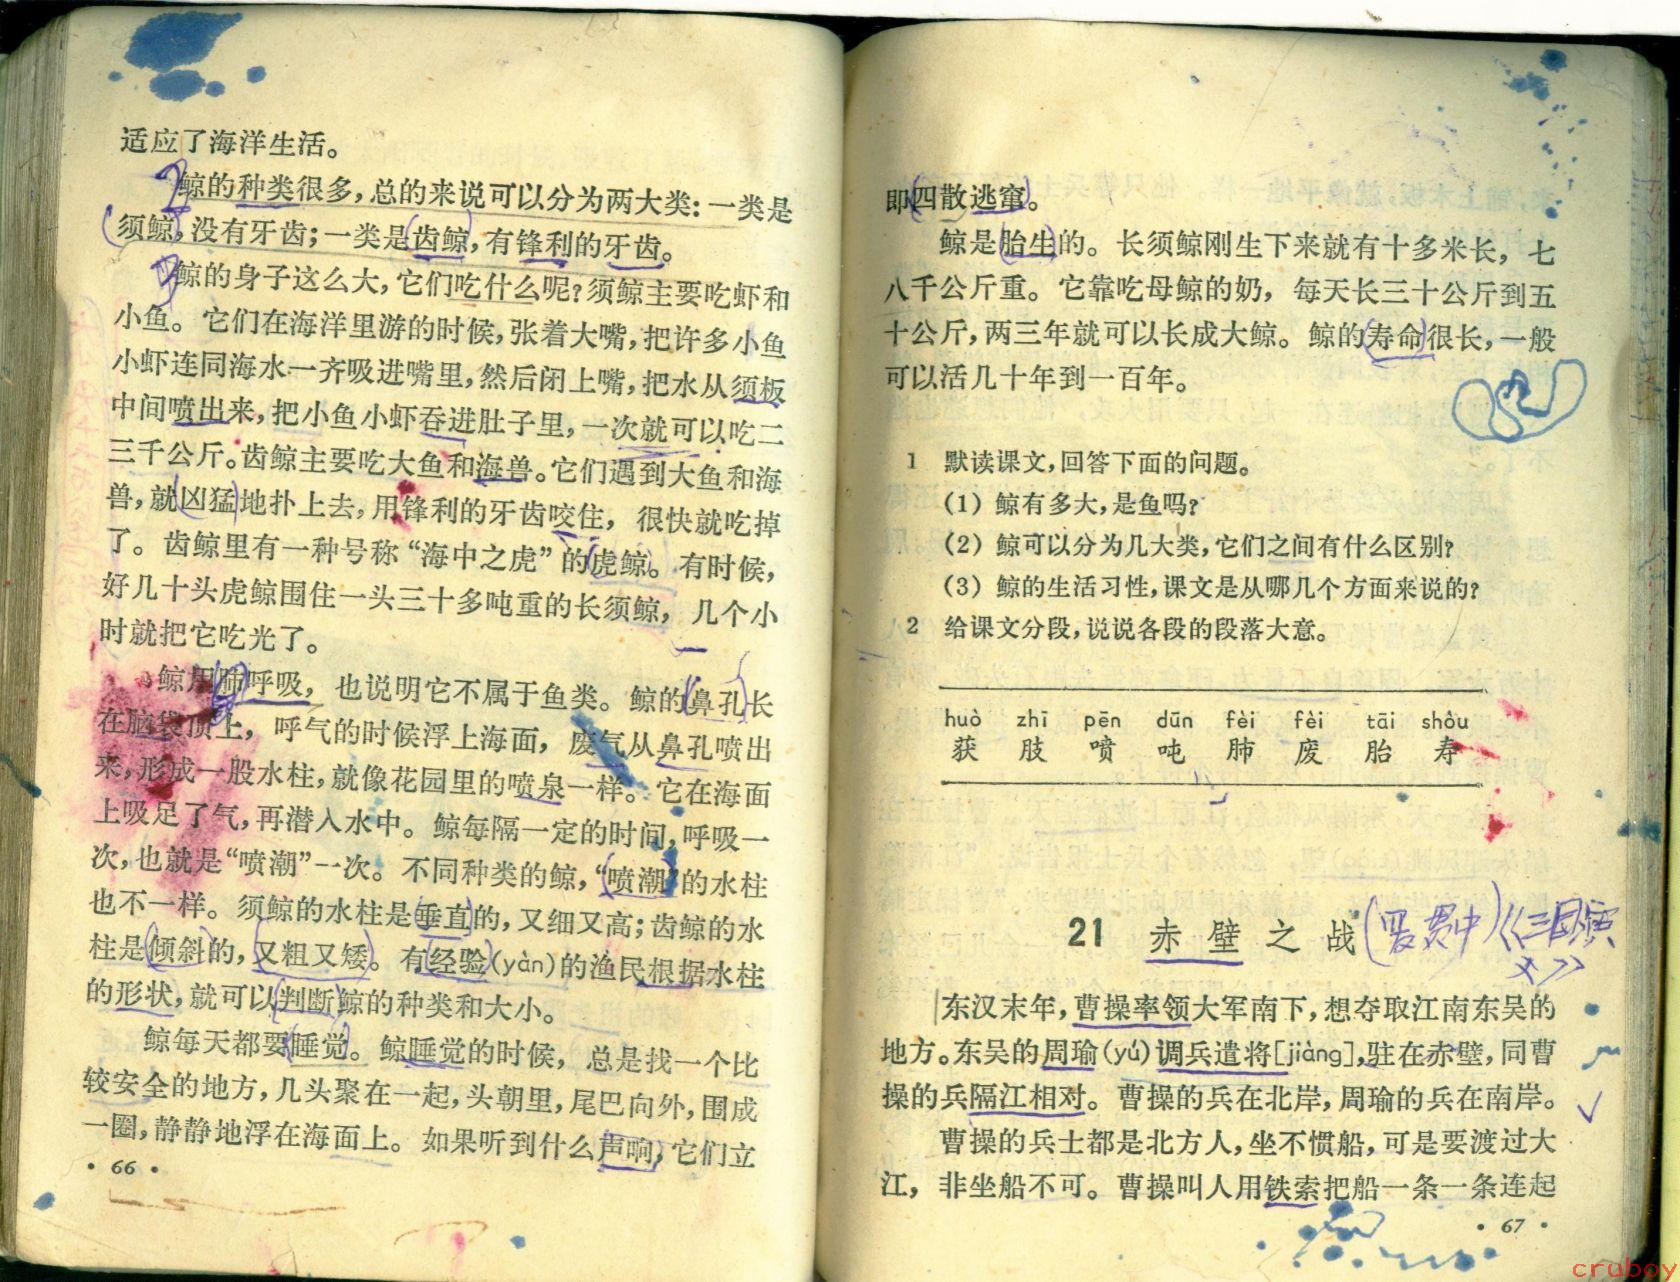 适应了海洋生活。
2
鲸的种类很多，总的来说可以分为两大类：一类是
须鲸，没有牙齿；一类是齿鲸，有锋利的牙齿。
3
鲸的身子这么大，它们吃什么呢？须鲸主要吃虾和
小鱼。它们在海洋里游的时候，张着大嘴，把许多小鱼
小虾连同海水一齐吸进嘴里，然后闭上嘴，把水从须板
中间喷出来，把小鱼小虾吞进肚子里，一次就可以吃二
三千公斤。齿鲸主要吃大鱼和海兽。它们遇到大鱼和海
兽，就凶猛地扑上去，用锋利的牙齿咬住，很快就吃掉
了。齿鲸里有一种号称“海中之虎”的虎鲸。有时候，
好几十头虎鲸围住一头三十多吨重的长须鲸，几个小
时就把它吃光了。
鲸用肺呼吸，也说明它不属于鱼类。鲸的鼻孔长
在脑袋顶上，呼气的时候浮上海面，废气从鼻孔喷出
来，形成一股水柱，就像花园里的喷泉一样。它在海面
上吸足了气，再潜入水中。鲸每隔一定的时间，呼吸一
次，也就是“喷潮”一次。不同种类的鲸，“喷潮”的水柱
也不一样。须鲸的水柱是垂直的，又细又高；齿鲸的水
柱是倾斜的，又粗又矮。有经验(yàn)的渔民根据水柱
的形状，就可以判断鲸的种类和大小。
鲸每天都要睡觉。鲸睡觉的时候，总是找一个比
较安全的地方，几头聚在一起，头朝里，尾巴向外，围成
一圈，静静地浮在海面上。如果听到什么声响，它们立
·66·
即四散逃窜。
鲸是胎生的。长须鲸刚生下来就有十多米长，七
八千公斤重。它靠吃母鲸的奶，每天长三十公斤到五
十公斤，两三年就可以长成大鲸。鲸的寿命很长，一般
可以活几十年到一百年。
1 默读课文，回答下面的问题。
(1) 鲸有多大，是鱼吗？
(2) 鲸可以分为几大类，它们之间有什么区别？
(3) 鲸的生活习性，课文是从哪几个方面来说的？
2 给课文分段，说说各段的段落大意。
huò zhī pēn dūn fèi fèi tāi shòu
获 肢 喷 吨 肺 废 胎 寿
21 赤壁之战(罗贯中)《三国演
义》
东汉末年，曹操率领大军南下，想夺取江南东吴的
地方。东吴的周瑜(yú)调兵遣将[jiàng]，驻在赤壁，同曹
操的兵隔江相对。曹操的兵在北岸，周瑜的兵在南岸。
曹操的兵士都是北方人，坐不惯船，可是要渡过大
江，非坐船不可。曹操叫人用铁索把船一条一条连起
·67·
cruboy